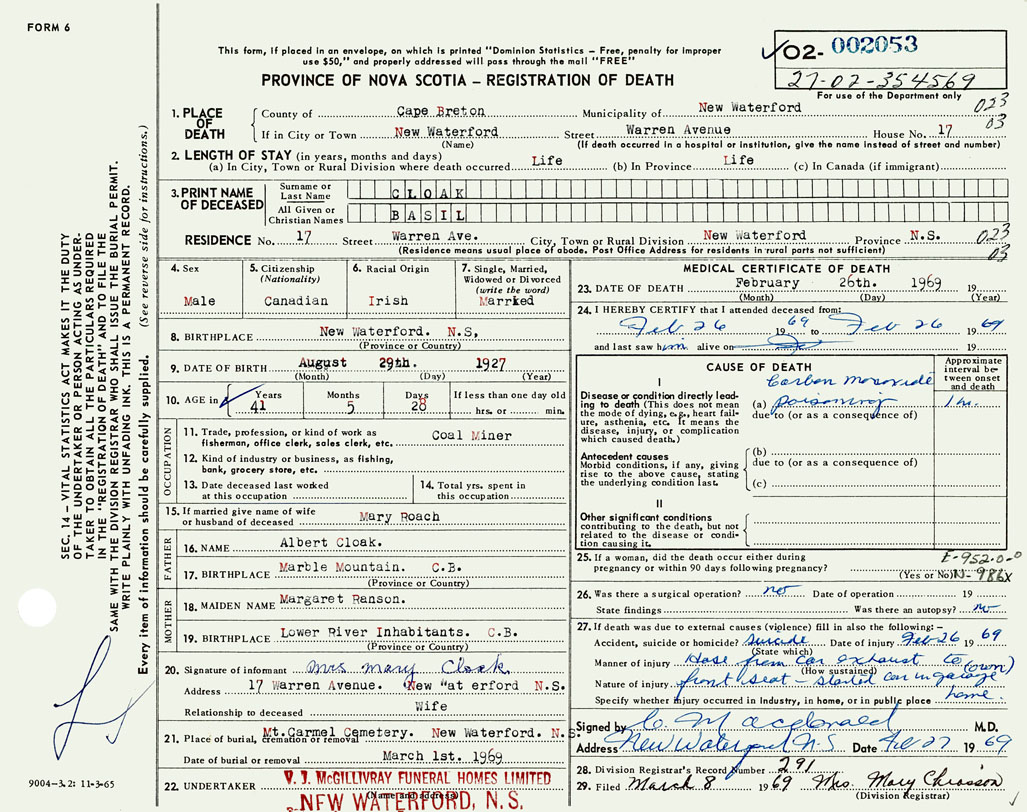 FORM 6
This form, if placed in an envelope, on which is printed "Dominion Statistics – Free, penalty for improper
use $50," and properly addressed will pass through the mail "FREE"
PROVINCE OF NOVA SCOTIA – REGISTRATION OF DEATH
✓02- 002053
27-02-354569
For use of the Department only
SEC. 14 – VITAL STATISTICS ACT MAKES IT THE DUTY
OF THE UNDERTAKER OR PERSON ACTING AS UNDER-
TAKER TO OBTAIN ALL THE PARTICULARS REQUIRED
IN THE "REGISTRATION OF DEATH" AND TO FILE THE
SAME WITH THE DIVISION REGISTRAR WHO SHALL ISSUE THE BURIAL PERMIT.
WRITE PLAINLY WITH UNFADING INK. THIS IS A PERMANENT RECORD.
Every item of information should be carefully supplied. (See reverse side for instructions.)
9004-3.2: 11-3-65
1. PLACE OF DEATH County of Cape Breton Municipality of New Waterford 023
If in City or Town New Waterford Street Warren Avenue House No. 17 03
(Name) (If death occurred in a hospital or institution, give the name instead of street and number)
2. LENGTH OF STAY (in years, months and days)
(a) In City, Town or Rural Division where death occurred Life (b) In Province Life (c) In Canada (if immigrant)
3. PRINT NAME OF DECEASED Surname or Last Name CLOAK
All Given or Christian Names BASIL
RESIDENCE No. 17 Street Warren Ave. City, Town or Rural Division New Waterford Province N.S. 023
(Residence means usual place of abode. Post Office Address for residents in rural parts not sufficient) 03
4. Sex Male
5. Citizenship (Nationality) Canadian
6. Racial Origin Irish
7. Single, Married, Widowed or Divorced (write the word) Married
8. BIRTHPLACE New Waterford. N.S,
(Province or Country)
9. DATE OF BIRTH August 29th. 1927
(Month) (Day) (Year)
10. AGE in Years 41 Months 5 Days 28 If less than one day old hrs. or min.
OCCUPATION
11. Trade, profession, or kind of work as fisherman, office clerk, sales clerk, etc. Coal Miner
12. Kind of industry or business, as fishing, bank, grocery store, etc.
13. Date deceased last worked at this occupation
14. Total yrs. spent in this occupation
15. If married give name of wife or husband of deceased Mary Roach
FATHER
16. NAME Albert Cloak.
17. BIRTHPLACE Marble Mountain. C.B.
(Province or Country)
MOTHER
18. MAIDEN NAME Margaret Ranson.
19. BIRTHPLACE Lower River Inhabitants. C.B.
(Province or Country)
20. Signature of informant Mrs Mary Cloak
Address 17 Warren Avenue. New "at erford N.S.
Relationship to deceased Wife
21. Place of burial, cremation or removal Mt.Carmel Cemetery. New Waterford. N.S.
Date of burial or removal March 1st. 1969
22. UNDERTAKER V. J. McGILLIVRAY FUNERAL HOMES LIMITED
(Name and address)
NEW WATERFORD, N.S.
MEDICAL CERTIFICATE OF DEATH
23. DATE OF DEATH February 26th. 1969 19
(Month) (Day) (Year)
24. I HEREBY CERTIFY that I attended deceased from:
Feb 26 1969 to Feb 26 1969
and last saw him alive on 19
CAUSE OF DEATH
Approximate interval between onset and death
I
Disease or condition directly leading to death (This does not mean the mode of dying, e.g., heart failure, asthenia, etc. It means the disease, injury, or complication which caused death.)
Carbon monoxide
(a) poisoning 1 hr.
due to (or as a consequence of)
Antecedent causes
Morbid conditions, if any, giving rise to the above cause, stating the underlying condition last.
(b)
due to (or as a consequence of)
(c)
II
Other significant conditions contributing to the death, but not related to the disease or condition causing it.
25. If a woman, did the death occur either during pregnancy or within 90 days following pregnancy? (Yes or No)
E-952.0-0
N-986X
26. Was there a surgical operation? no Date of operation 19
State findings Was there an autopsy? no
27. If death was due to external causes (violence) fill in also the following: –
Accident, suicide or homicide? Suicide Date of injury Feb 26 1969
(State which)
Manner of injury Hose from car exhaust to (own)
(How sustained)
Nature of injury front seat – started car in garage
Specify whether injury occurred in industry, in home, or in public place home
Signed by C. M Macdonald M.D.
Address New Waterford N.S Date Feb 27 1969
28. Division Registrar's Record Number 291
29. Filed March 8 1969 Mrs. Mary Chiasson
(Division Registrar)